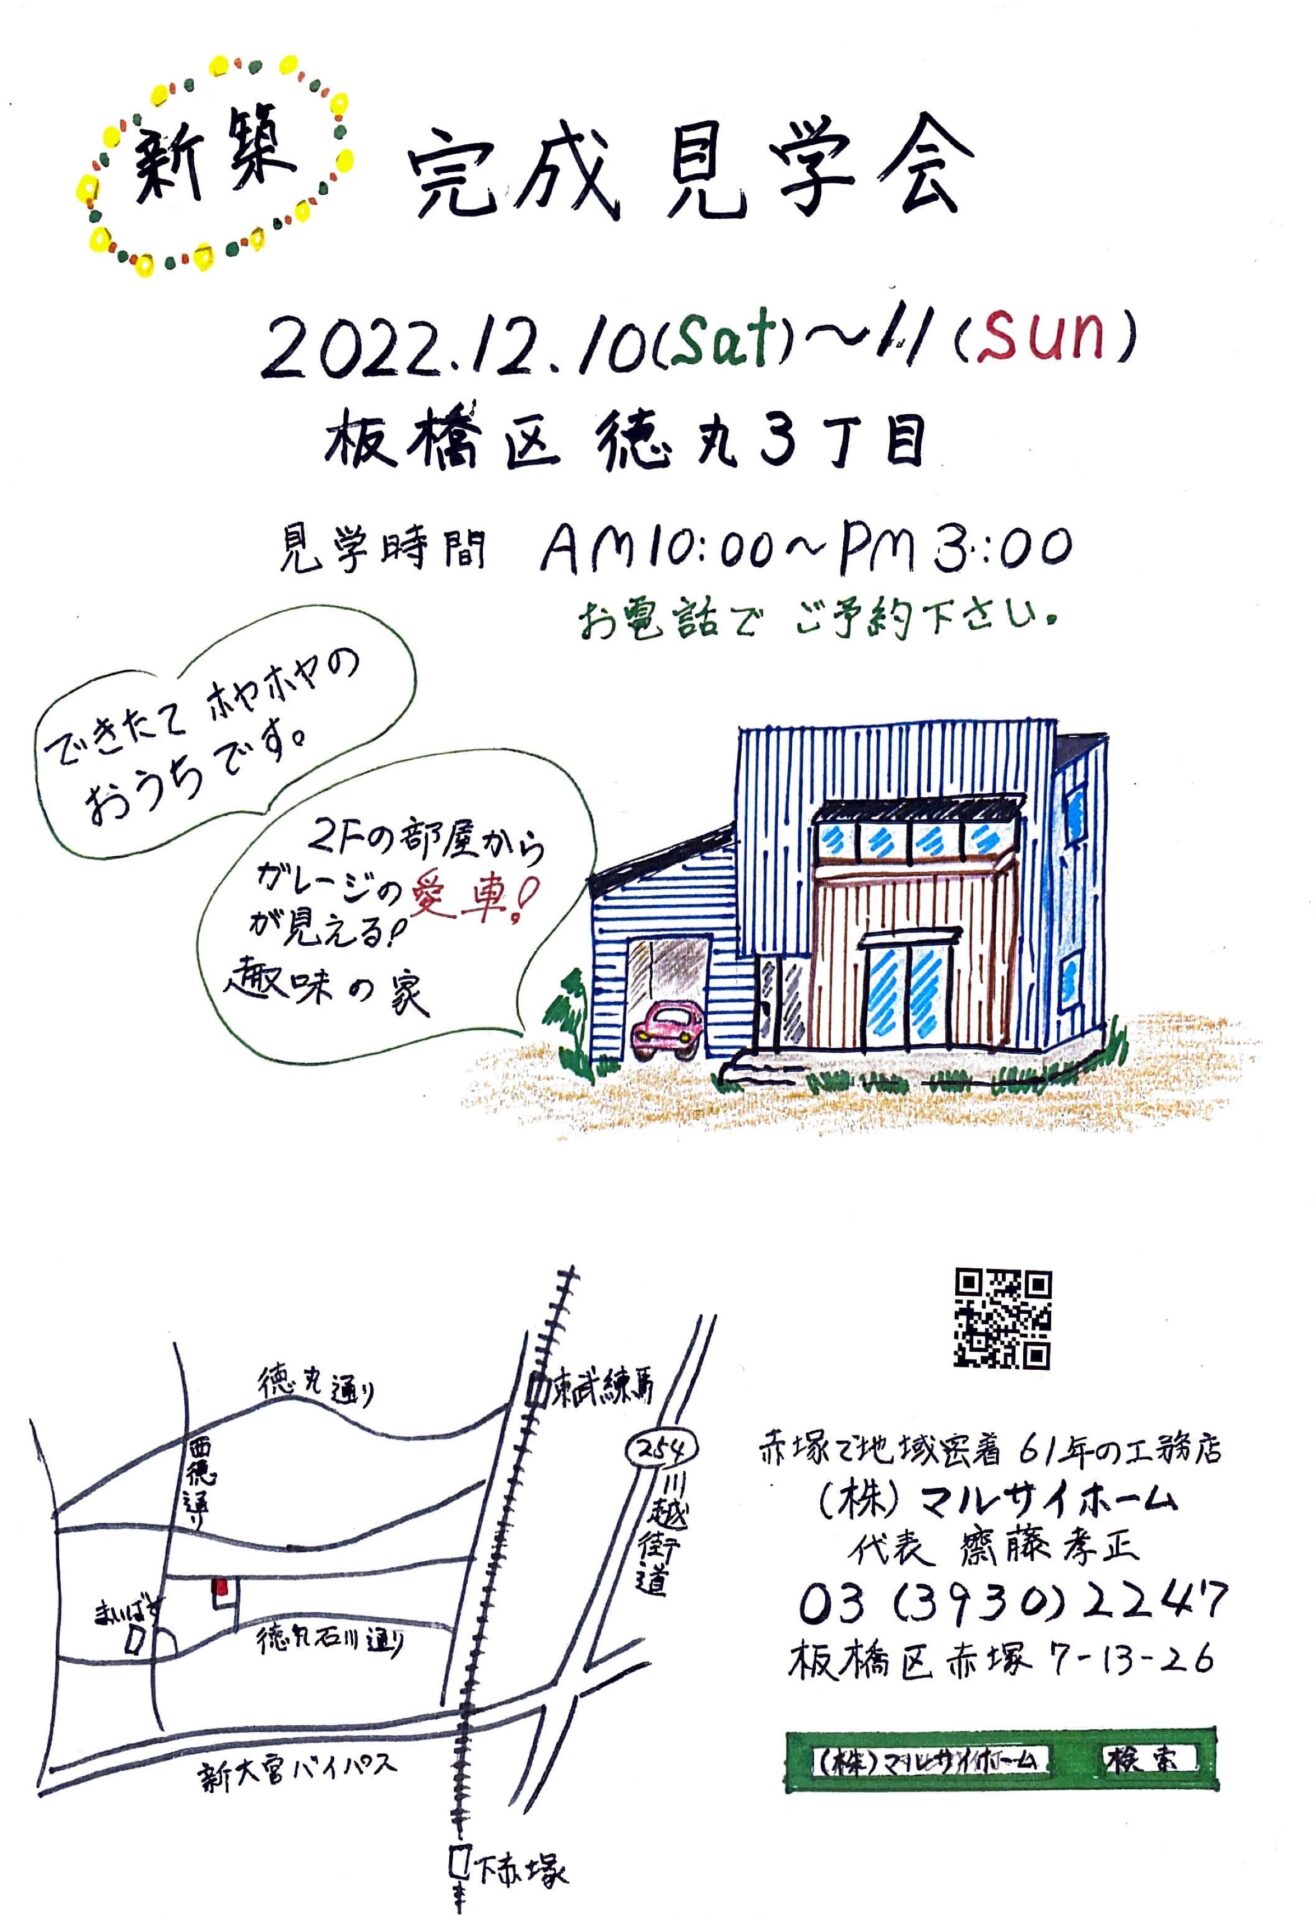 新築 完成見学会
2022.12.10(Sat)～11(Sun)
板橋区 徳丸3丁目
見学時間 AM10:00～PM3:00
お電話でご予約下さい。
できたてホヤホヤの
おうちです。
2Fの部屋から
ガレージの愛車!
が見える!
趣味の家
徳丸通り
西徳通り
東武練馬
254
川越街道
まいばす
徳丸石川通り
新大宮バイパス
下赤塚
赤塚で地域密着 61年の工務店
(株)マルサイホーム
代表 齋藤孝正
03(3930)2247
板橋区赤塚7-13-26
(株)マルサイホーム 検索